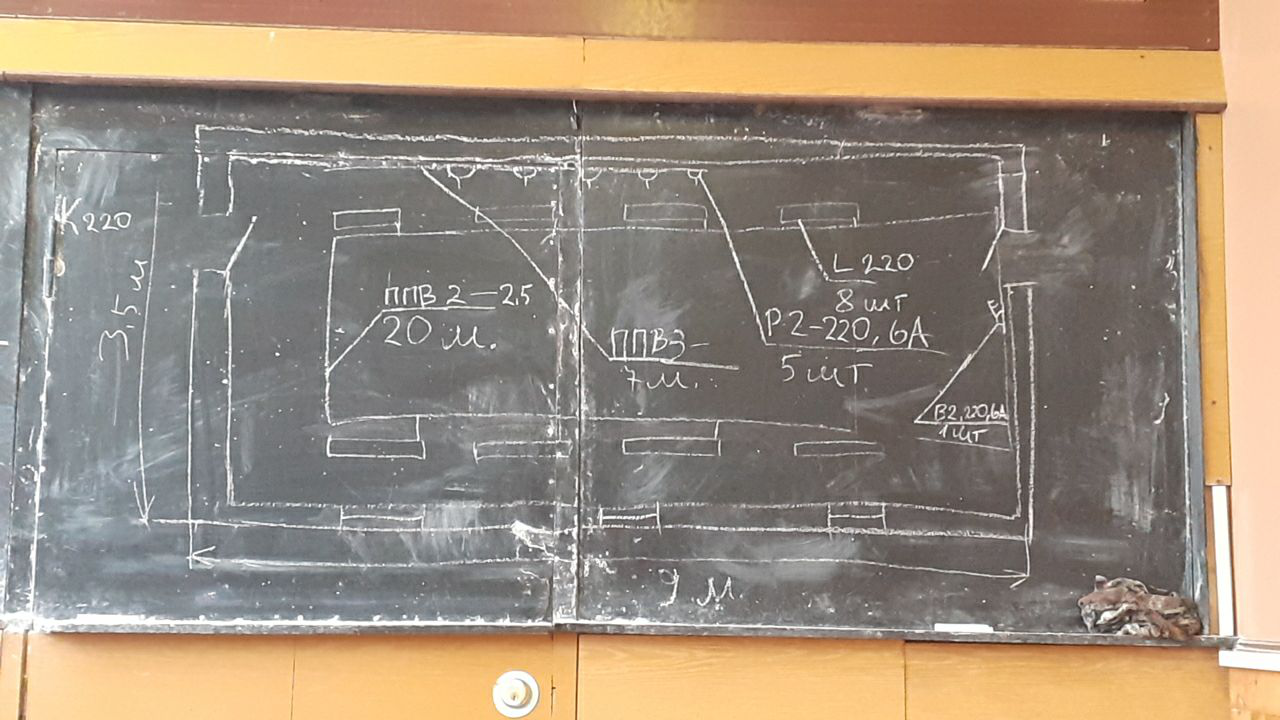 К220
3,5 м
ППВ 2-2,5
20 м.
ППВ3-
7 м.
L 220
8 шт
Р.2-220, 6А
5 шт
В2,220,6А
1 шт
9 м